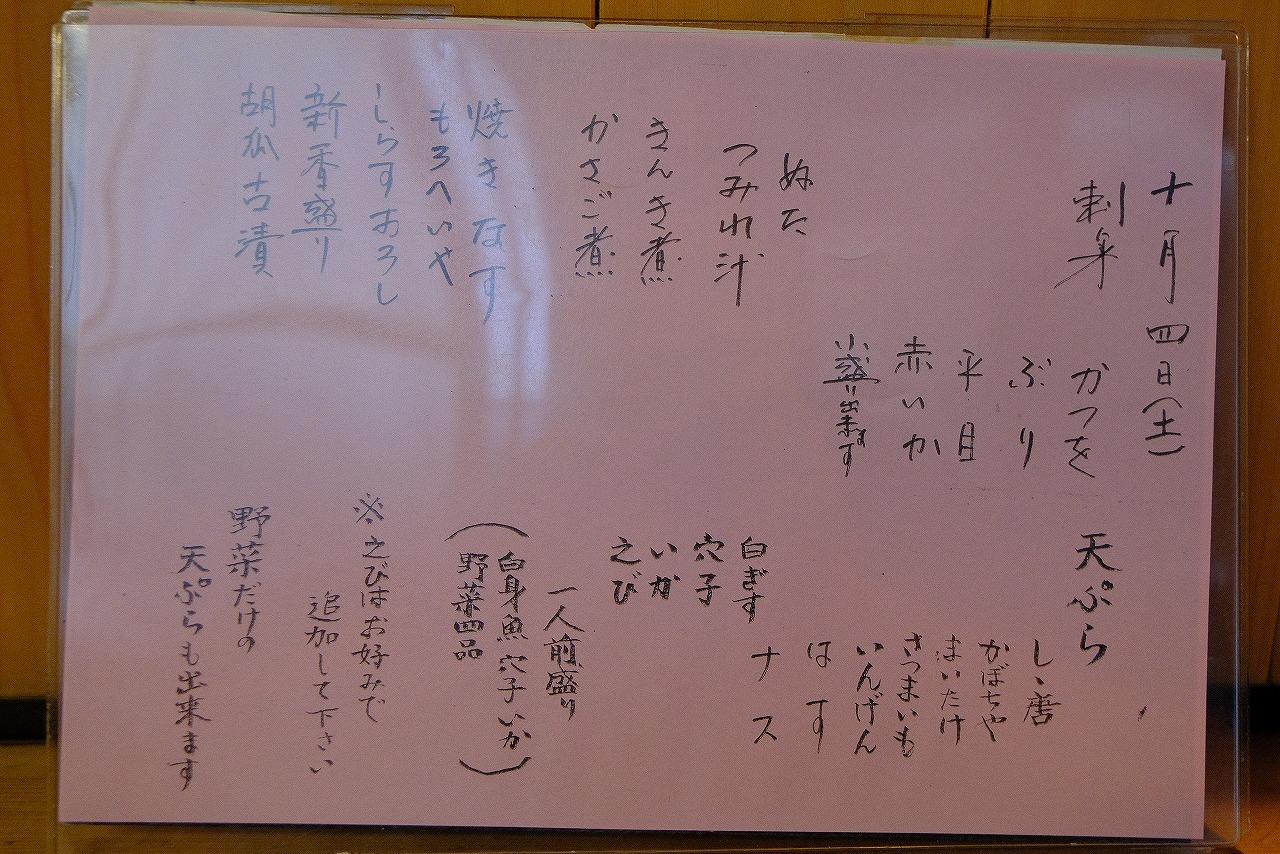 十月四日(土)
刺身
かつを
ぶり
平目
赤いか
小盛り出来ます
ぬた
つみれ汁
きんき煮
かさご煮
焼きなす
もろへいや
しらすおろし
新香盛り
胡瓜古漬
天ぷら
しゝ唐
かぼちや
まいたけ
さつまいも
いんげん
はす
ナス
白ぎす
穴子
いか
えび
一人前盛り
(白身魚 穴子 いか
野菜四品)
※えびはお好みで
追加して下さい
野菜だけの
天ぷらも出来ます